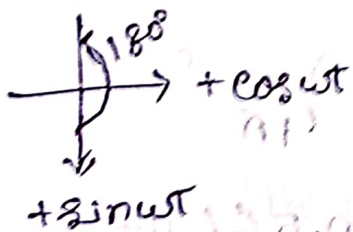 180°
+ cos wt
+ sin wt